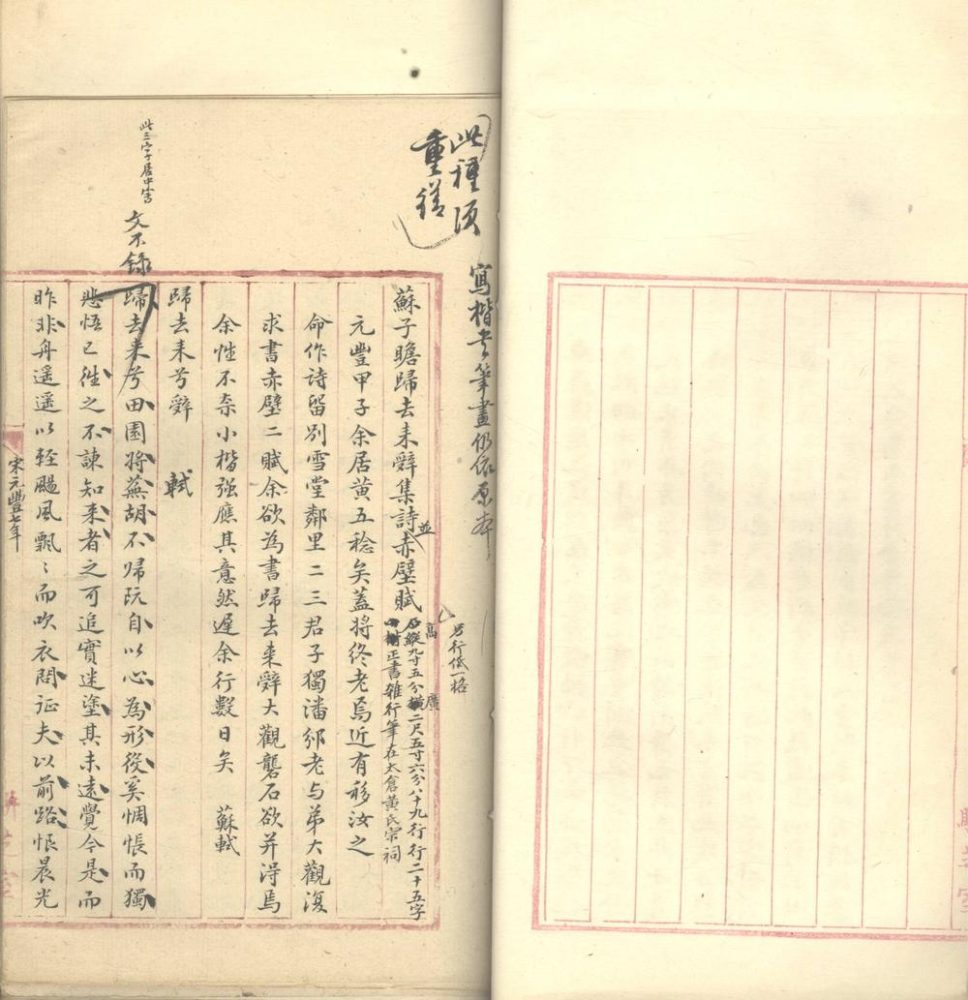 此種須
重繕
寫楷書筆畫仍依原本
蘇子瞻歸去来辭集詩並赤壁賦
另行低一格
石高縱九寸五分横廣二尺五寸六分八十九行行二十五字
正書雜行筆在太倉黃氏宗祠
元豐甲子余居黃五稔矣蓋将終老焉近有移汝之
命作詩留別雪堂鄰里二三君子獨潘邠老与弟大觀復
求書赤壁二賦余欲為書歸去来辭大觀礱石欲并淂焉
余性不奈小楷强應其意然遲余行數日矣 蘇軾
歸去来兮辭 軾
此三字居中寫
文不錄
歸去来兮田園将蕪胡不歸既自以心為形役奚惆悵而獨
悲悟已往之不諫知来者之可追實迷塗其未遠覺今是而
昨非舟遥遥以輕颺風飄〻而吹衣問征夫以前路恨晨光
宋元豐七年